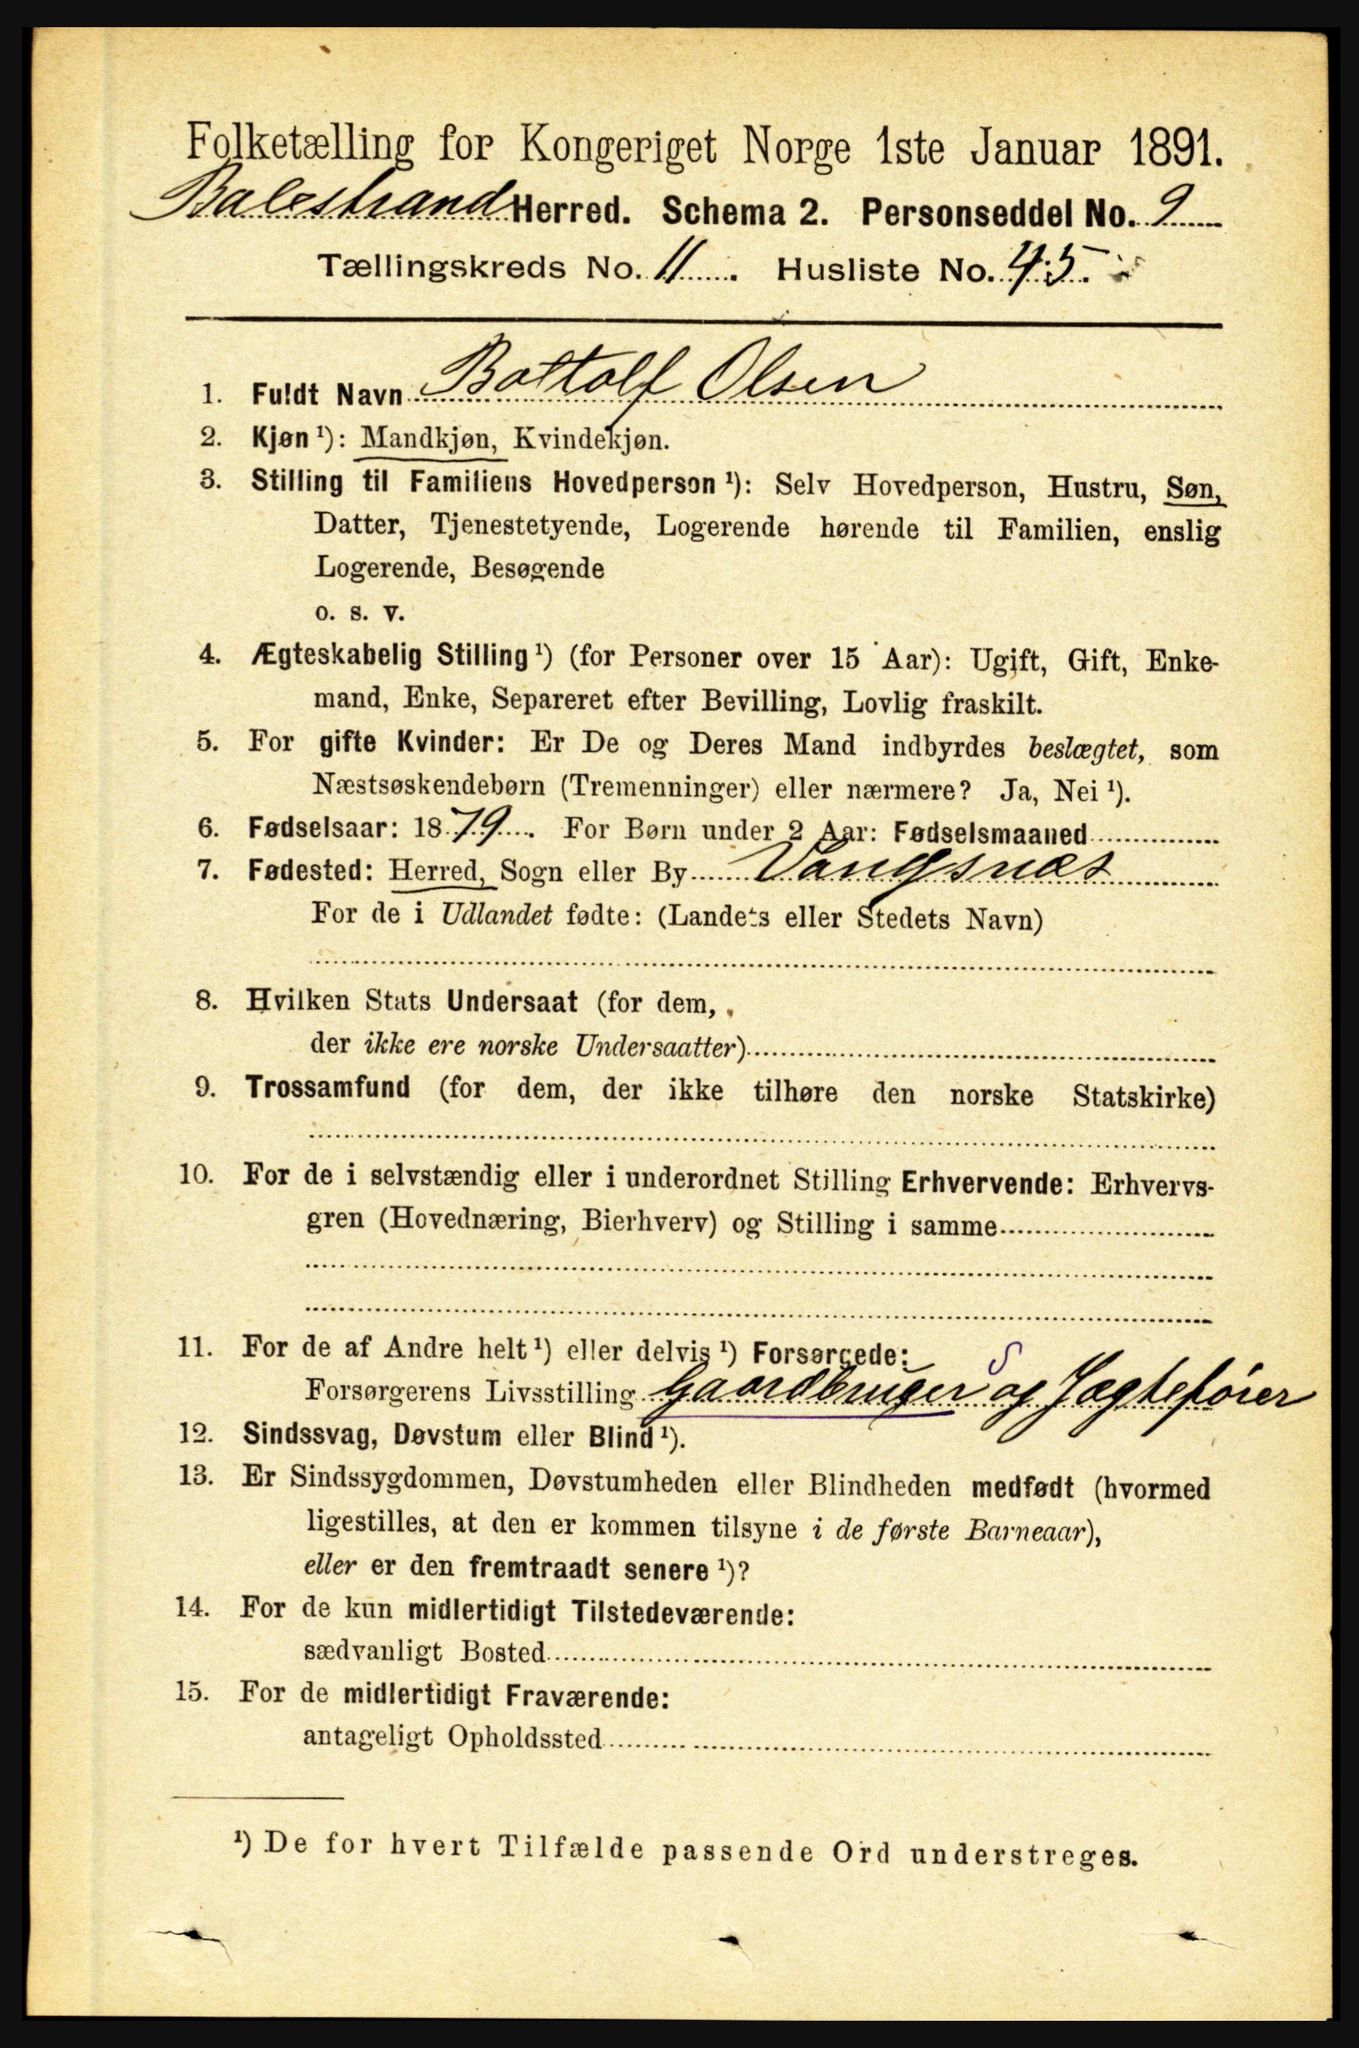 Folketælling for Kongeriget Norge 1ste Januar 1891.
Balestrand Herred. Schema 2. Personseddel No. 9
Tællingskreds No. 11. Husliste No. 45.
1. Fuldt Navn Bottolf Olsen
2. Kjøn ¹): Mandkjøn, Kvindekjøn.
3. Stilling til Familiens Hovedperson ¹): Selv Hovedperson, Hustru, Søn,
Datter, Tjenestetyende, Logerende hørende til Familien, enslig
Logerende, Besøgende
o. s. v.
4. Ægteskabelig Stilling ¹) (for Personer over 15 Aar): Ugift, Gift, Enke-
mand, Enke, Separeret efter Bevilling, Lovlig fraskilt.
5. For gifte Kvinder: Er De og Deres Mand indbyrdes beslægtet, som
Næstsøskendebørn (Tremenninger) eller nærmere? Ja, Nei ¹).
6. Fødselsaar: 1879. For Børn under 2 Aar: Fødselsmaaned
7. Fødested: Herred, Sogn eller By Vangsnæs
For de i Udlandet fødte: (Landets eller Stedets Navn)
8. Hvilken Stats Undersaat (for dem,
der ikke ere norske Undersaatter)
9. Trossamfund (for dem, der ikke tilhøre den norske Statskirke)
10. For de i selvstændig eller i underordnet Stilling Erhvervende: Erhvervs-
gren (Hovednæring, Bierhverv) og Stilling i samme
11. For de af Andre helt ¹) eller delvis ¹) Forsørgede: S
Forsørgerens Livsstilling Gaardbruger og Jægtefører
12. Sindssvag, Døvstum eller Blind ¹).
13. Er Sindssygdommen, Døvstumheden eller Blindheden medfødt (hvormed
ligestilles, at den er kommen tilsyne i de første Barneaar),
eller er den fremtraadt senere ¹)?
14. For de kun midlertidigt Tilstedeværende:
sædvanligt Bosted
15. For de midlertidigt Fraværende:
antageligt Opholdssted
¹) De for hvert Tilfælde passende Ord understreges.